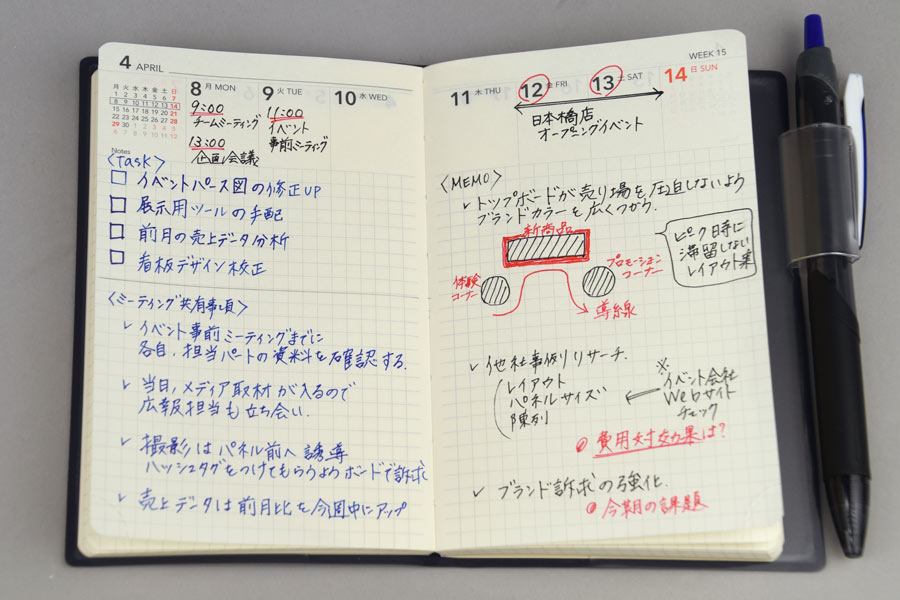 4 APRIL
月 火 水 木 金 土 日
1 2 3 4 5 6 7
8 9 10 11 12 13 14
15 16 17 18 19 20 21
22 23 24 25 26 27 28
29 30 1 2 3 4 5
6 7 8 9 10 11 12
Notes
8 月 MON
9:00
チームミーティング
13:00
企画会議
9 火 TUE
11:00
イベント
事前ミーティング
10 水 WED
<Task>
イベントパース図の修正UP
展示用ツールの手配
前月の売上データ分析
看板デザイン校正
<ミーティング共有事項>
✓ イベント事前ミーティングまでに
各自、担当パートの資料を確認する。
✓ 当日、メディア取材が入るので
広報担当も立ち会い。
✓ 撮影はパネル前へ誘導
ハッシュタグをつけてもらうようボードで訴求
✓ 売上データは前月比を今週中にアップ
WEEK 15
11 木 THU
12 金 FRI
13 土 SAT
14 日 SUN
日本橋店
オープニングイベント
<MEMO>
✓ トップボードが売り場を圧迫しないよう
ブランドカラーを広くつかう。
新商品
体験
コーナー
プロモーション
コーナー
導線
ピーク時に
滞留しない
レイアウト案
✓ 他社事例リサーチ。
レイアウト
パネルサイズ
陳列
※
イベント会社
Webサイト
チェック
費用対効果は?
✓ ブランド訴求の強化。
今期の課題